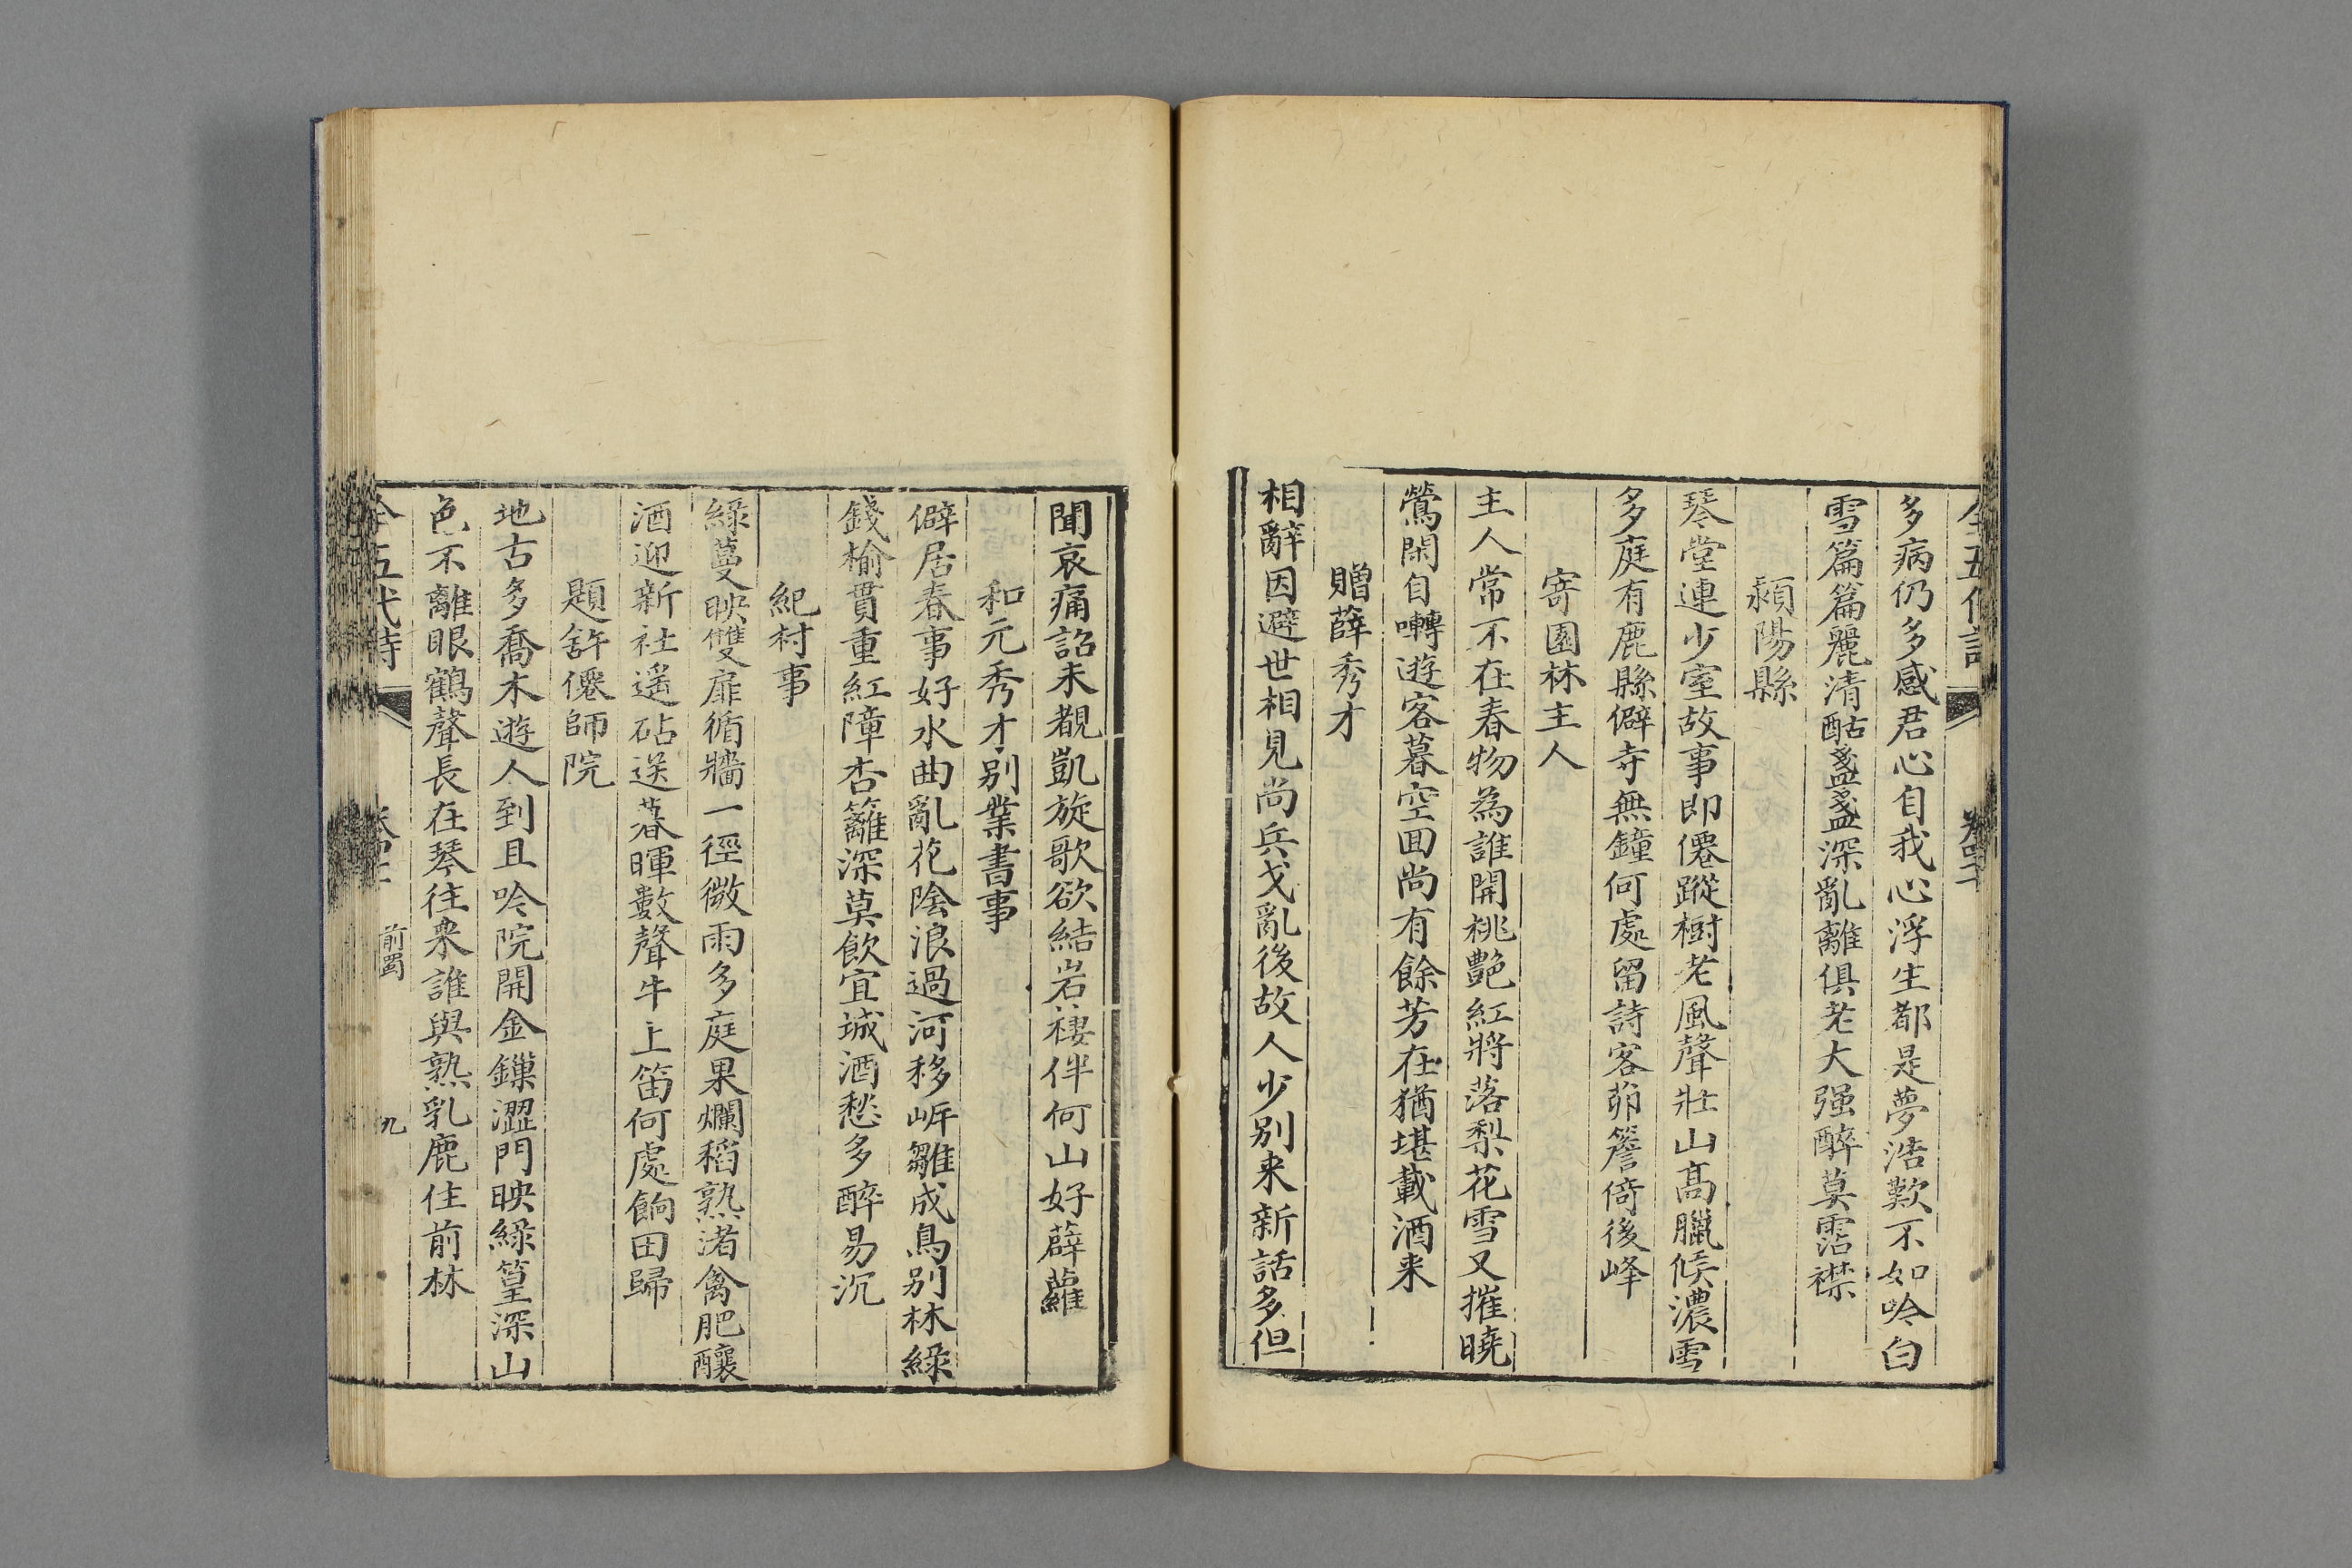 多病仍多感君心自我心浮生都是夢浩歎不如吟白
雪篇篇麗清酤盞盞深亂離俱老大强醉莫霑襟
潁陽縣
琴堂連少室故事即僊蹤樹老風聲壯山髙臘候濃雪
多庭有鹿縣僻寺無鐘何處留詩客茆簷倚後峰
寄園林主人
主人常不在春物為誰開桃艶紅將落梨花雪又摧曉
鶯閑自囀遊客暮空回尚有餘芳在猶堪載酒来
贈薛秀才
相辭因避世相見尚兵戈亂後故人少别来新話多但
聞哀痛詔未覩凱旋歌欲結岩棲伴何山好薜蘿
和元秀才别業書事
僻居春事好水曲亂花陰浪過河移岍雛成鳥别林綠
錢榆貫重紅障杏籬深莫飲宜城酒愁多醉易沉
紀村事
綠蔓映雙扉循牆一徑微雨多庭果爛稻熟渚禽肥釀
酒迎新社遥砧送暮暉數聲牛上笛何處餉田歸
題許僊師院
地古多喬木遊人到且吟院開金鏁澀門映綠篁深山
色不離眼鶴聲長在琴往来誰與熟乳鹿住前林
五代詩
前蜀
九